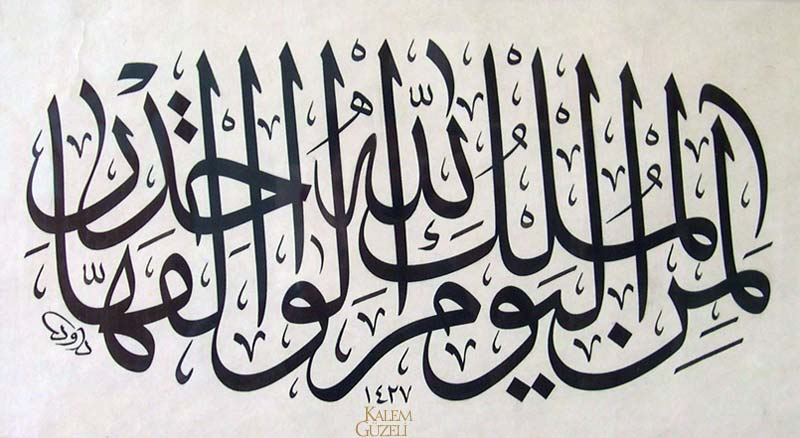 لِمَنِ الْمُلْكُ الْيَوْمَ لِلّٰهِ الْوَاحِدِ الْقَهَّارِ
داود
١٤٢٧
KALEM
GÜZELİ